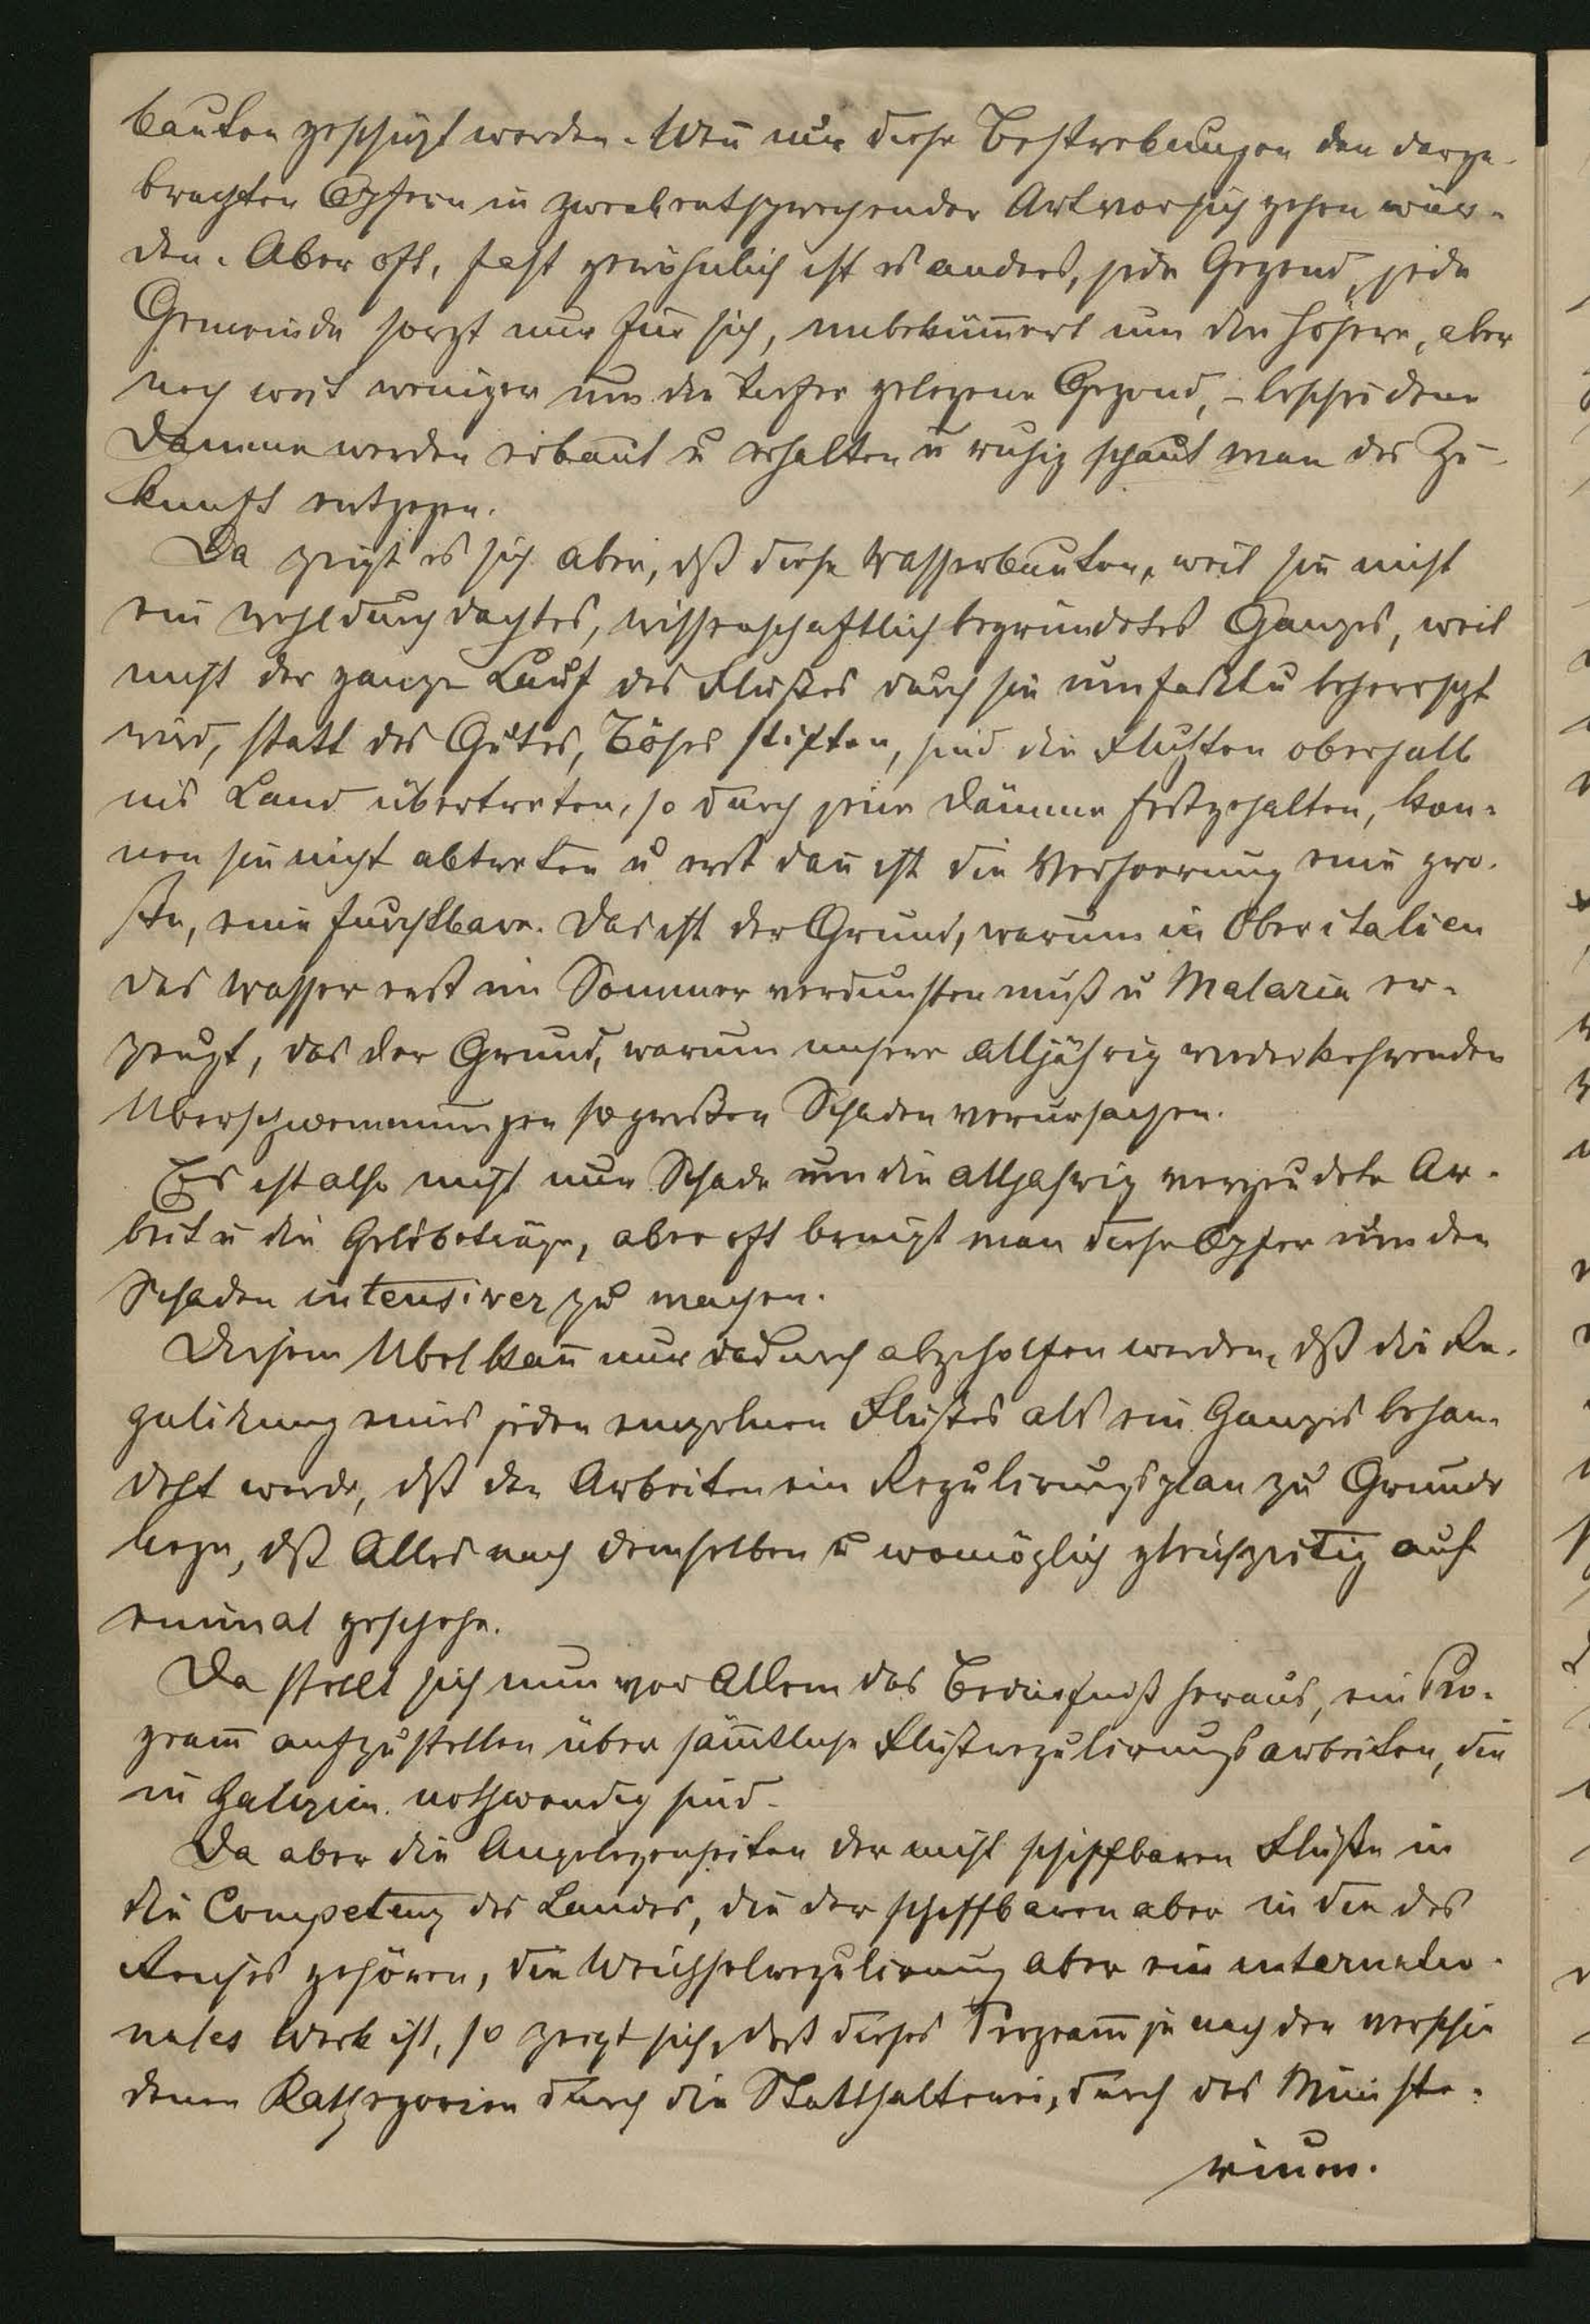 bauten geschützt werden. Weñ nur diese Bestrebungen den darge-
brachten Opfern in zweckentsprechender Art vor sich gehen wür-
den. Aber oft, fast gewöhnlich ist es anders, jede Gegend, jede
Gemeinde sorgt nur für sich, unbeküm̄ert um die höhere, aber
noch weit weniger um die tiefer gelegene Gegend, – bescheidene
Dämme werden erbaut u erhalten u ruhig schaut man der Zu-
kunft entgegen.
Da zeigt es sich aber, dß diese Wasserbauten, weil sie nicht
ein wohldurchdachtes, wissenschaftlich begründetes Ganzes, weil
nicht der ganze Lauf des Flußes durch sie umfaßt u beherrscht
wird, statt des Gutes, Böses stiften, sind die Fluthen oberhalb
ins Land übertreten, so durch jene Dämme festgehalten, kön-
nen sie nicht abtreten u erst dañ ist die Verheerung eine gro-
ße, eine furchtbare. Das ist der Grund, warum in Oberitalien
das Wasser erst im Sommer verdunsten muß u Malaria er-
zeugt, das der Grund, warum unsere alljährig wiederkehrenden
Uberschwemmungen so großen Schaden verursachen.
Es ist also nicht nur Schade um die alljahrig vergeudete Ar-
beit u die Geldbeträge, aber oft bringt man diese Opfer um den
Schaden intensiver zu machen.
Diesem Ubel kañ nur dadurch abgeholfen werden, dß die Re-
gulirung eines jeden einzelnen Flußes als ein Ganzes behan-
delt werde, dß den Arbeiten ein Regulirungsplan zu Grunde
liege, dß Alles nach demselben u womöglich gleichzeitig auf
einmal geschehe.
Da stellt sich nun vor Allem das Bedürfniß heraus, ein Pro-
gram̄ aufzustellen über säm̄tliche Flußregulirungsarbeiten, die
in Galizien nothwendig sind.
Da aber die Angelegenheiten der nicht schiffbaren Flüße in
die Competenz des Landes, die der schiffbaren aber in die des
Reiches gehören, die Weichselregulirung aber ein internatio-
nales Werk ist, so zeigt sich, daß dieses Program̄ je nach den verschie
denen Kathegorien durch die Statthalterei, durch das Ministe-
rium.